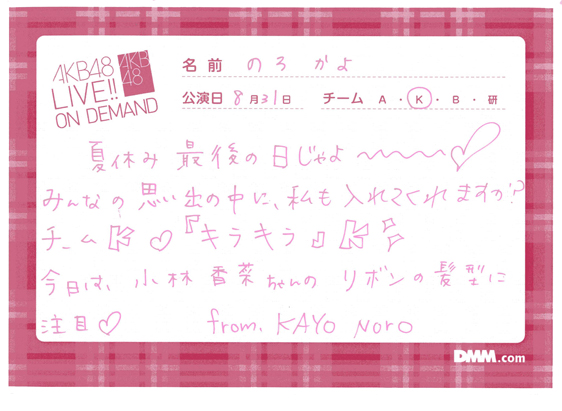 AKB48
LIVE!!
ON DEMAND
AKB
48
名前 のろ かよ
公演日 8月31日 チーム A・K・B・研
夏休み 最後の日じゃよ〜〜〜♡
みんなの思い出の中に、私も入れてくれますか?
チームK♡『キラキラ』K
今日は、小林香菜ちゃんのリボンの髪型に
注目♡ from. KAYO NORO
DMM.com